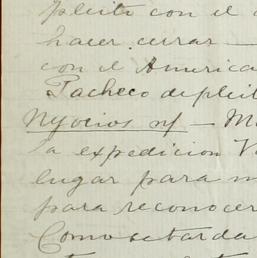 pleito con el
hacer cerrar —
con el America
Pacheco de pleit
Nyocios nf — M
la expedicion V
lugar para m
para reconocer
Como se tarda